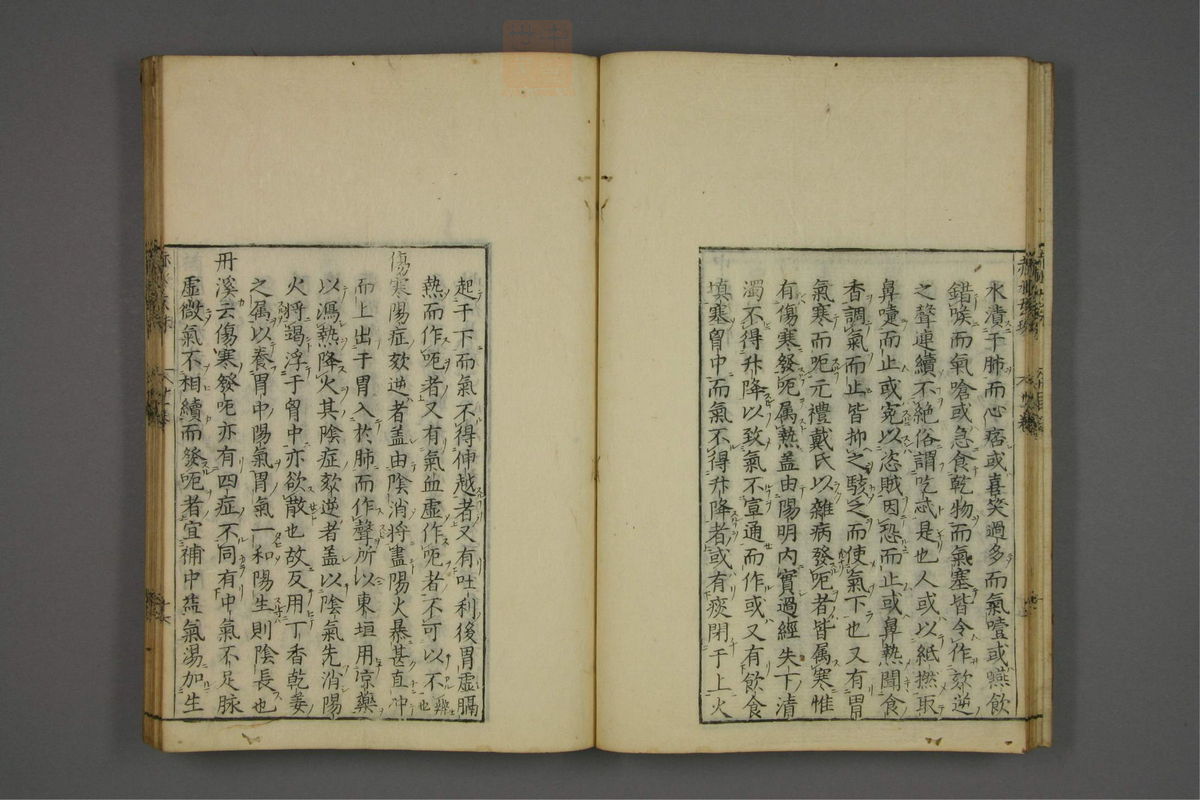 水漬于肺而心痞或喜笑過多而氣噎或嚥飲
錯喉而氣嗆或急食乾物而氣塞皆令作欬逆
之聲連續不絶俗謂吃忒是也人或以紙撚取
鼻嚏而止或冤以恣賊因恐而止或鼻熱聞食
香調氣而止皆抑之駭之而使氣下也又有胃
氣寒而呃元禮戴氏以雜病發呃者皆属寒惟
有傷寒發呃属熱盖由陽明内實過經失下清
濁不得升降以致氣不宣通而作或又有飲食
填塞胷中而氣不得升降者或有痰閉于上火
起于下而氣不得伸越者又有吐利後胃虚膈
熱而作呃者又有氣血虚作呃者不可以不辨也
傷寒陽症欬逆者盖由陰消将盡陽火暴甚直冲
而上出于胃入於肺而作聲所以東垣用凉藥
以瀉熱降火其陰症欬逆者盖以陰氣先消陽
火将竭浮于胷中亦欲散也故反用丁香乾姜
之属以養胃中陽氣胃氣一和陽生則陰長也
丹溪云傷寒發呃亦有四症不同有中氣不足脉
虚微氣不相續而發呃者宜補中益氣湯加生